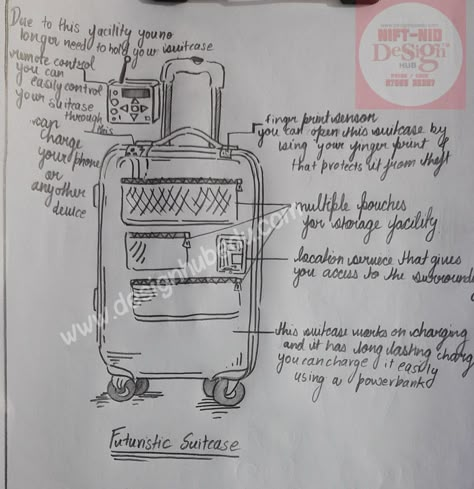 Due to this facility you no
longer need to hold your suitcase
remote control
you can
easily control
your suitcase
through
this
can
charge
your phone
or
any other
device
www.designhubedu.com
NIFT-NID
DeSign
HUB
finger print sensor
you can open this suitcase by
using your finger print &
that protects it from theft
multiple pouches
for storage facility
location service that gives
you access to the surrounding
this suitcase works on charging
and it has long lasting charge
you can charge it easily
using a powerbank
Futuristic Suitcase